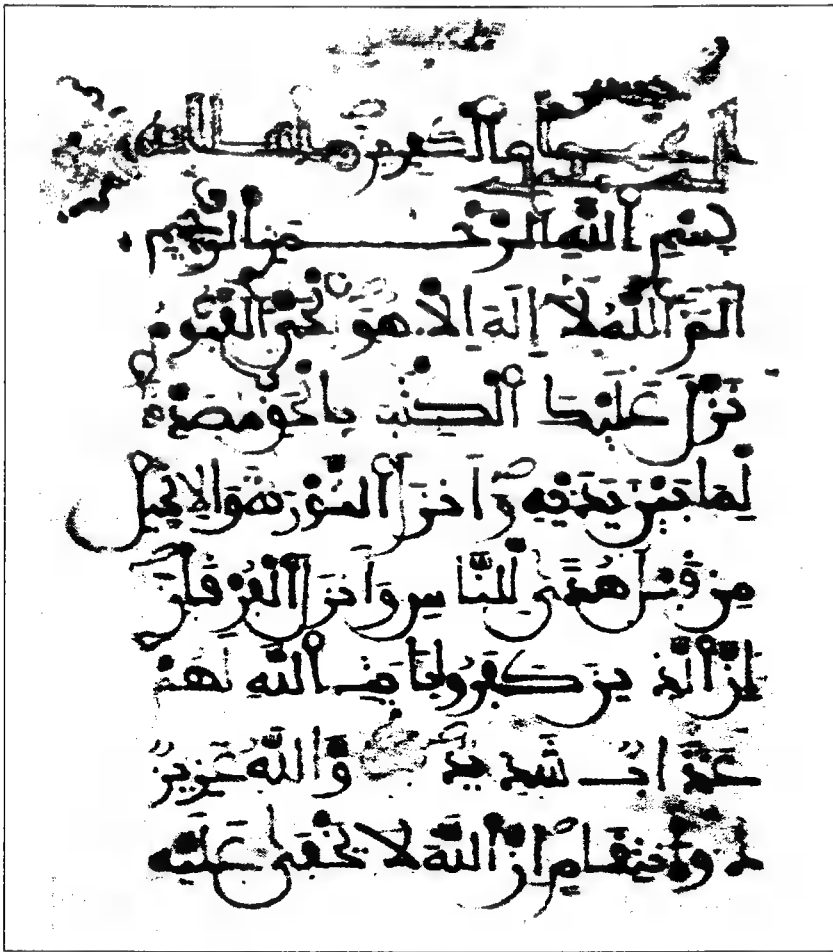 بِسْمِ اللَّهِ الرَّحْمَنِ الرَّحِيمِ
الَمَ اللَّهُ لَا إِلَهَ إِلَّا هُوَ الْحَيُّ الْقَيُّومُ
نَزَّلَ عَلَيْكَ الْكِتَبَ بِالْحَقِّ مُصَدِّقًا
لِمَا بَيْنَ يَدَيْهِ وَأَنزَلَ التَّوْرَيةَ وَالْإِنجِيلَ
مِن قَبْلُ هُدًى لِّلنَّاسِ وَأَنزَلَ الْفُرْقَانَ
إِنَّ الَّذِينَ كَفَرُوا بِـَايَتِ اللَّهِ لَهُمْ
عَذَابٌ شَدِيدٌ وَاللَّهُ عَزِيزٌ
ذُو انتِقَامٍ إِنَّ اللَّهَ لَا يَخْفَى عَلَيْهِ